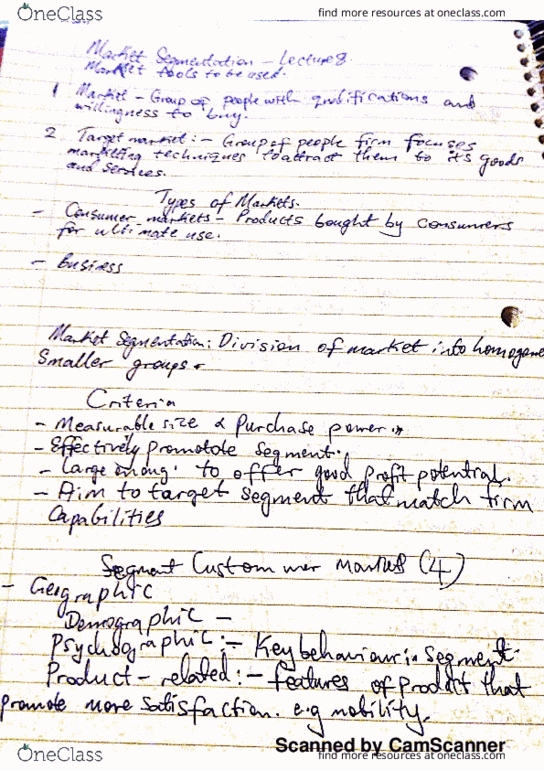 OneClass
find more resources at oneclass.com
Market Segmentation - Lecture 8
Market tools to be used.
1 Market - Group of people with qualifications and
willingness to buy.
2 Target market :- Group of people firm focuses
marketing techniques to attract them to its goods
and services.
Types of Markets.
- Consumer markets - Products bought by consumers
for ultimate use.
- Business
Market Segmentation: Division of market into homogene
Smaller groups.
Criteria
- Measurable size & Purchase power
- Effectively promotole Segment.
- Large to offer good Profit potential.
- Aim to target Segment that match firm
Capabilities
Segment Custom mer Market (4)
- Geographic
Demographic -
Psychographic :- Key behaviour in Segment.
Product - related :- features of Product that
promote more Satisfaction. e.g mobility.
Scanned by CamScanner
OneClass
find more resources at oneclass.com